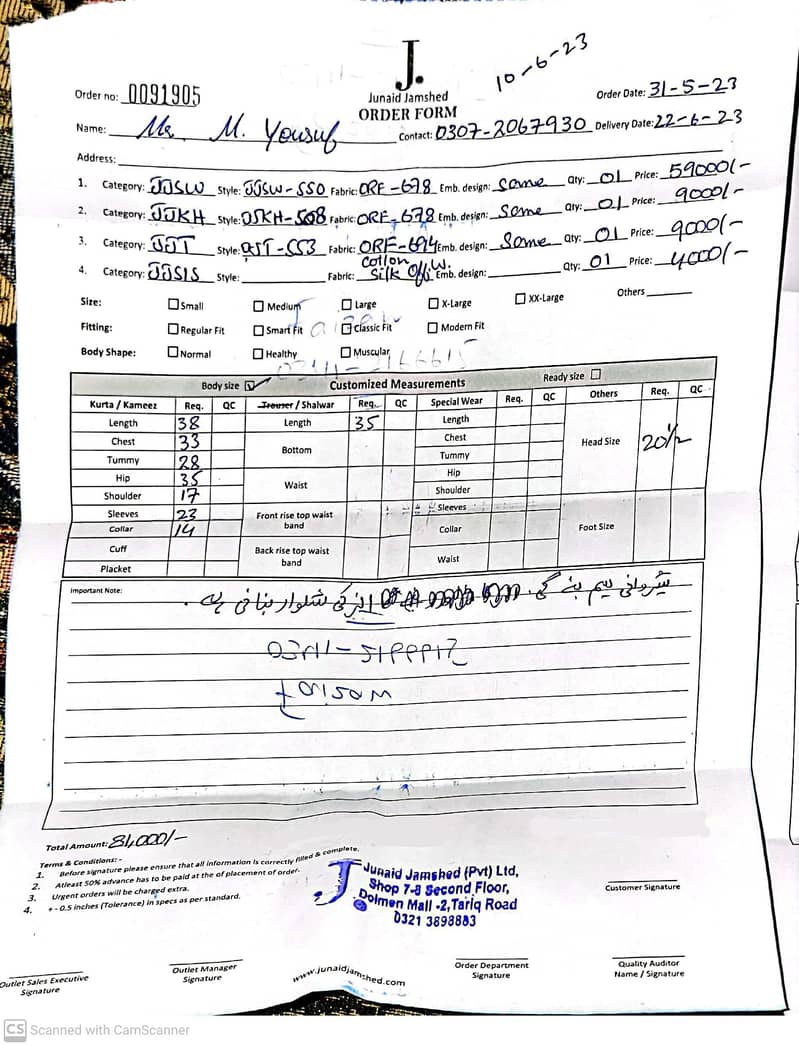 10-6-23
J.
Junaid Jamshed
ORDER FORM
Order no: 0091905
Order Date: 31-5-23
Name: Mr. M. Yousuf Contact: 0307-2067930 Delivery Date: 22-6-23
Address:
1. Category: JJSW Style: JJSW-550 Fabric: ORF-678 Emb. design: Same Qty: 01 Price: 59000/-
2. Category: JJKH Style: JSKH-508 Fabric: ORF-678 Emb. design: Same Qty: 01 Price: 9000/-
3. Category: JJT Style: JJT-553 Fabric: ORF-694 Emb. design: Same Qty: 01 Price: 9000/-
4. Category: JJSLS Style: Fabric: Cotton Silk Off W. Emb. design: Qty: 01 Price: 4000/-
Size: Small Medium Large X-Large XX-Large Others
Fitting: Regular Fit Smart Fit Classic Fit Modern Fit
Body Shape: Normal Healthy Muscular
Body size ✓ Customized Measurements Ready size
Kurta / Kameez Req. QC Trouser / Shalwar Req. QC Special Wear Req. QC Others Req. QC
Length 38 Length 35 Length Head Size 20 1/2
Chest 33 Bottom Chest
Tummy 28 Tummy
Hip 35 Waist Hip
Shoulder 17 Shoulder
Sleeves 23 Front rise top waist band Sleeves Foot Size
Collar 14 Collar
Cuff Back rise top waist band Waist
Placket
Important Note: شیروانی سیم بنے گی. اندر کی شلوار بنانی ہے.
Total Amount: 81,000/-
Terms & Conditions:-
1. Before signature please ensure that all information is correctly filled & complete.
2. Atleast 50% advance has to be paid at the of placement of order.
3. Urgent orders will be charged extra.
4. + - 0.5 inches (Tolerance) in specs as per standard.
J Junaid Jamshed (Pvt) Ltd,
Shop 7-8 Second Floor,
Dolmen Mall -2, Tariq Road
0321 3898883
Customer Signature
Outlet Sales Executive Signature
Outlet Manager Signature
www.junaidjamshed.com
Order Department Signature
Quality Auditor Name / Signature
CS Scanned with CamScanner